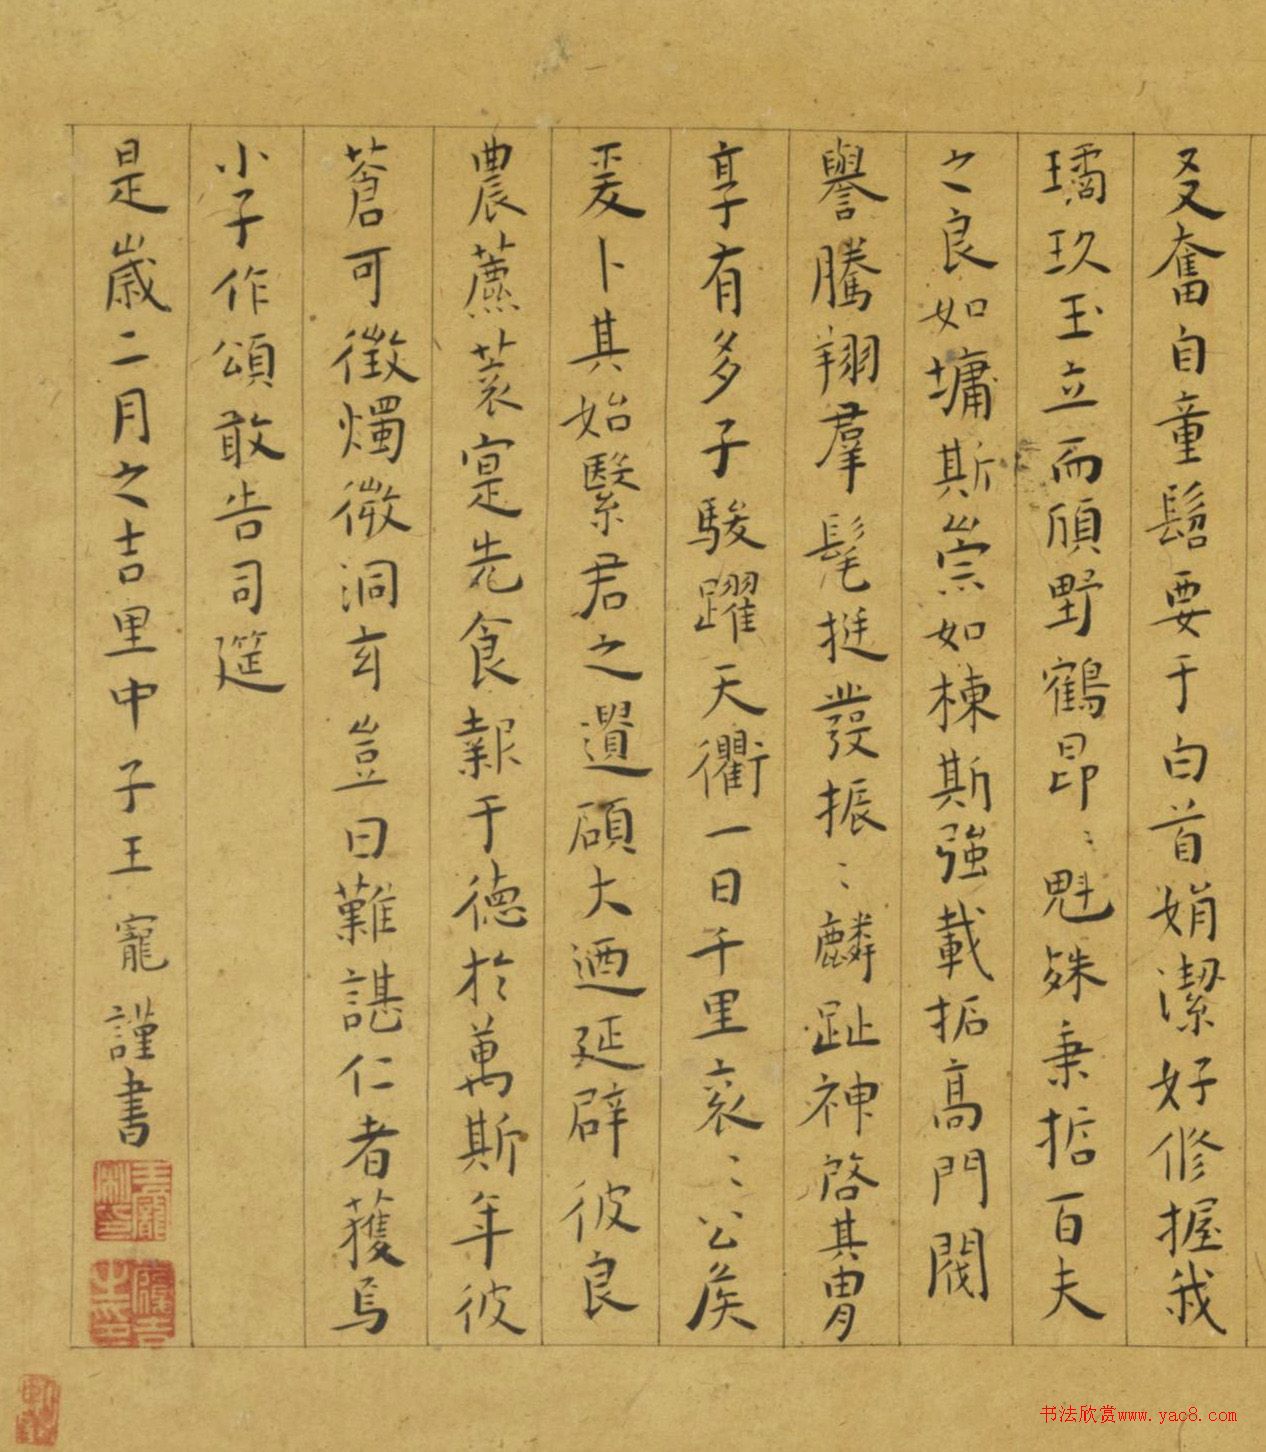 叉奮自童髫要于白首娟潔好修握我
璚玖玉立而頎野鶴昂〻魁殊秉哲百夫
之良如墉斯崇如棟斯強載拓高門閥
譽騰翔羣髦挺發振〻麟趾神啓其胄
享有多子駿躍天衢一日千里衮〻公侯
爰卜其始繄君之遺碩大迺延辟彼良
農藨蓘寔先食報于德於萬斯年彼
蒼可徵燭微洞玄豈曰難諶仁者獲焉
小子作頌敢告司筵
是歲二月之吉里中子王寵謹書
王寵
書法欣赏www.yac8.com